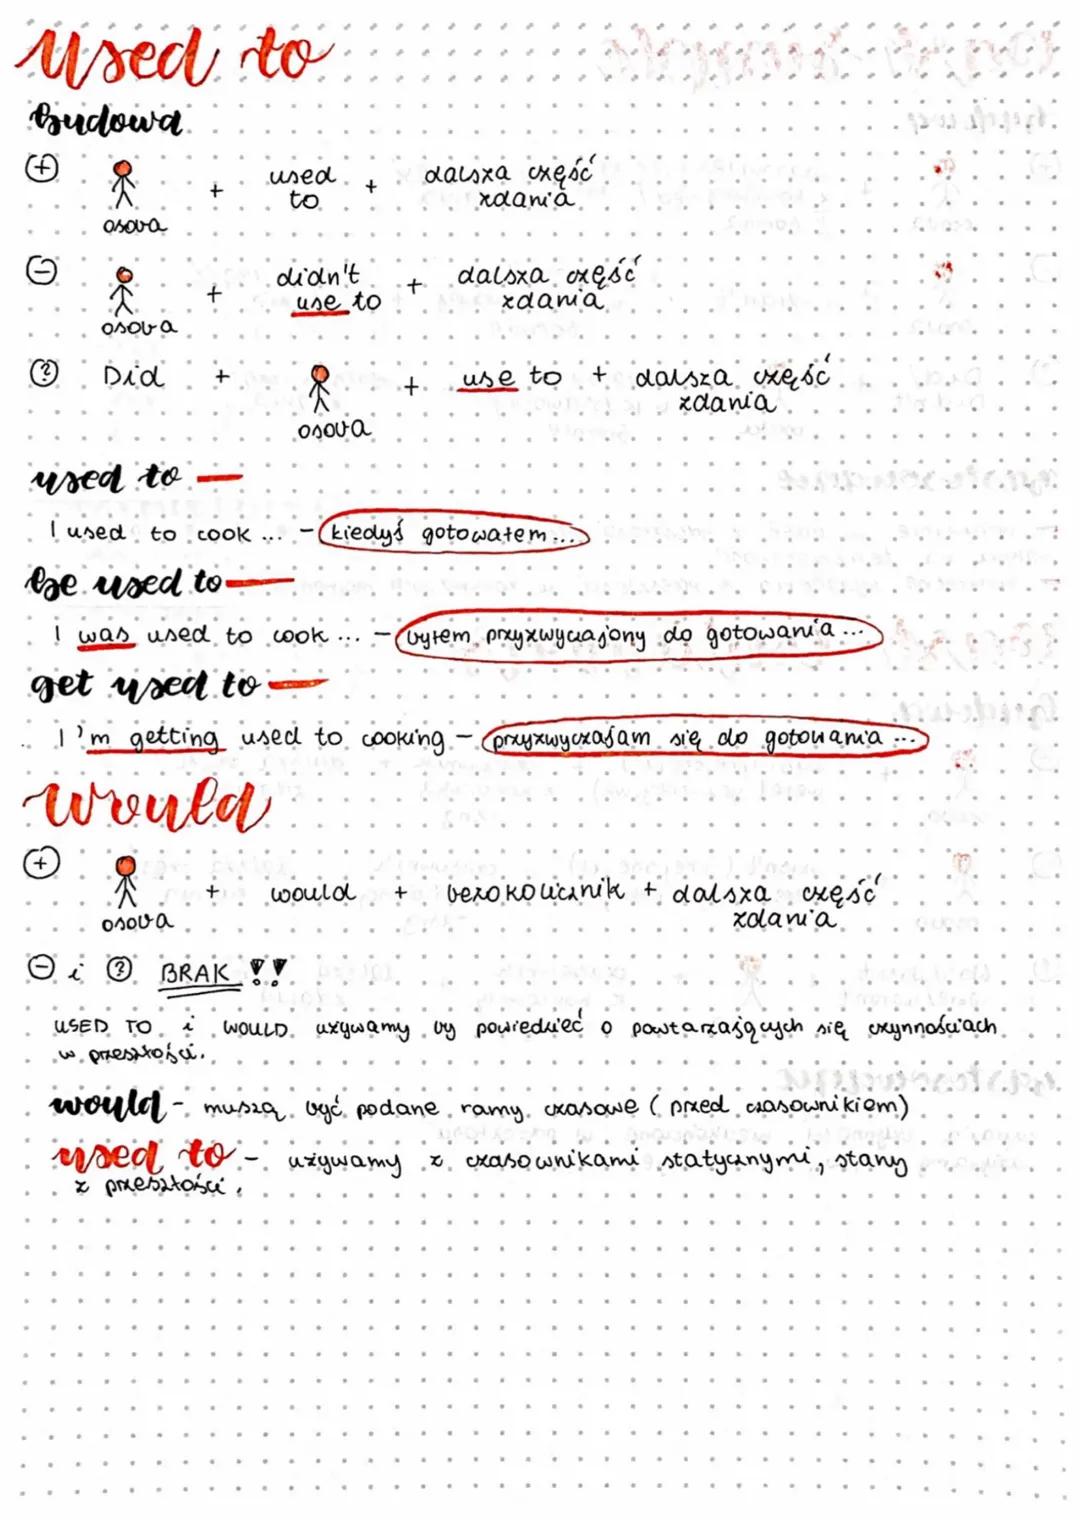 used to
budowa
+ osoba + used to + dalsza część zdania
- osoba + didn't use to + dalsza część zdania
? Did + osoba + use to + dalsza część zdania
used to —
I used to cook ... - kiedyś gotowałem...
be used to —
I was used to cook ... - byłem przyzwyczajony do gotowania...
get used to —
I'm getting used to cooking - przyzwyczajam się do gotowania...
would
+ osoba + would + bezokolicznik + dalsza część zdania
- i ? BRAK !!
USED TO i WOULD używamy by powiedzieć o powtarzających się czynnościach
w przeszłości.
would - muszą być podane ramy czasowe (przed czasownikiem)
used to - używamy z czasownikami statycznymi, stany
z przeszłości.